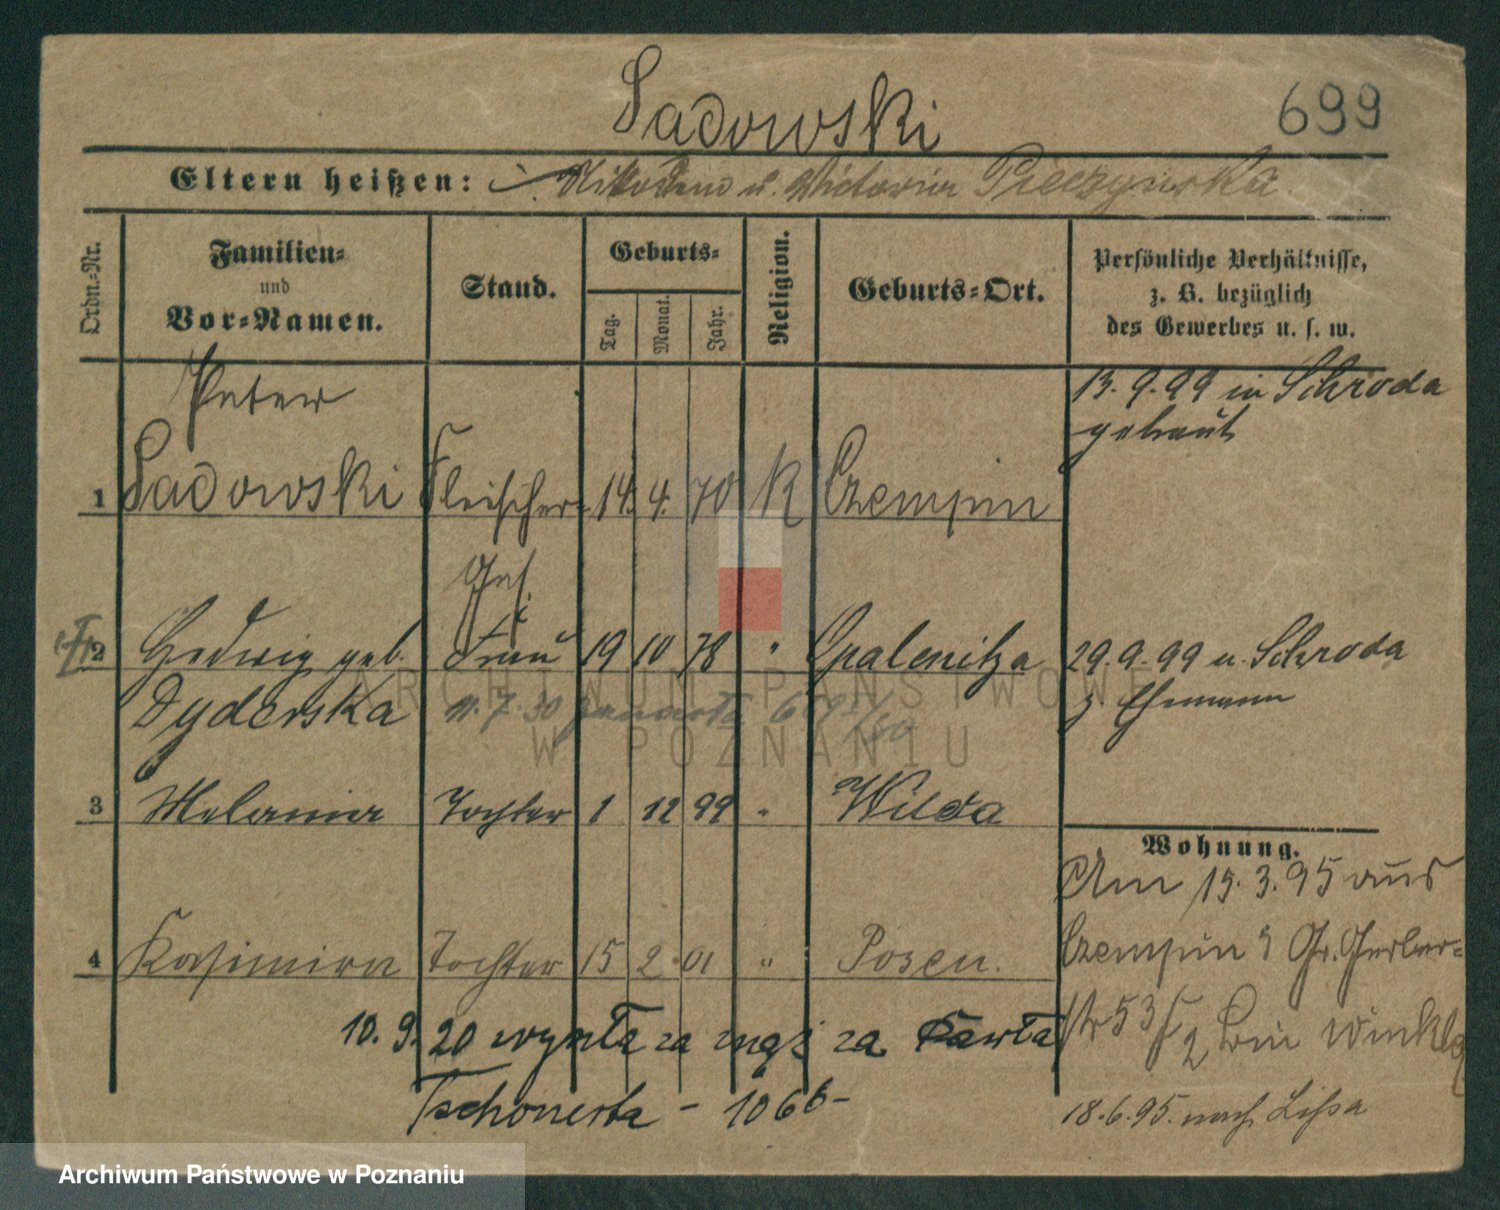 Sadowski
699
Eltern heißen: Nikodem u. Victoria Pieczynska
Ordn.-Nr.
Familien-
und
Vor-Namen.
Stand.
Geburts-
Tag.
Monat.
Jahr.
Religion.
Geburts-Ort.
Persönliche Verhältnisse,
z. B. bezüglich
des Gewerbes u. s. w.
Peter
1 Sadowski Fleischer- 14. 4. 70 K Czempin
Ges.
13. 9. 99 in Schroda
getraut
2 Hedwig geb. Frau 19 10 78 " Opalenitza
Dyderska
29. 9. 99 v. Schroda
z Ehemann
3 Melania Tochter 1 12 99 " Wilda
4 Kasimira Tochter 15 2 01 " Posen.
10. 9. 20 wyszła za mąż za Pawła
Tschonerta - 1066 -
Wohnung.
Am 15. 3. 95 aus
Czempin Gr. Gerber-
str 53 2 bei Winkler
18. 6. 95. nach Lissa
ARCHIWUM PAŃSTWOWE
W POZNANIU
Archiwum Państwowe w Poznaniu